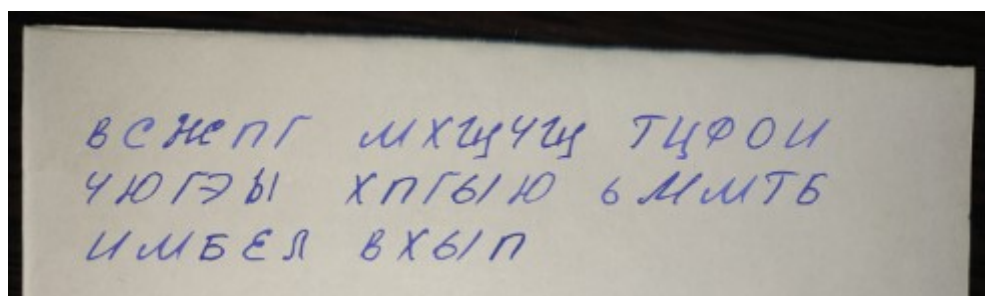 ВСЖПГ МХЩЧЩ ТЦФОИ
ЧЮГЭЫ ХПГЫЮ ЬММТБ
ИМБЕЛ ВХЫП